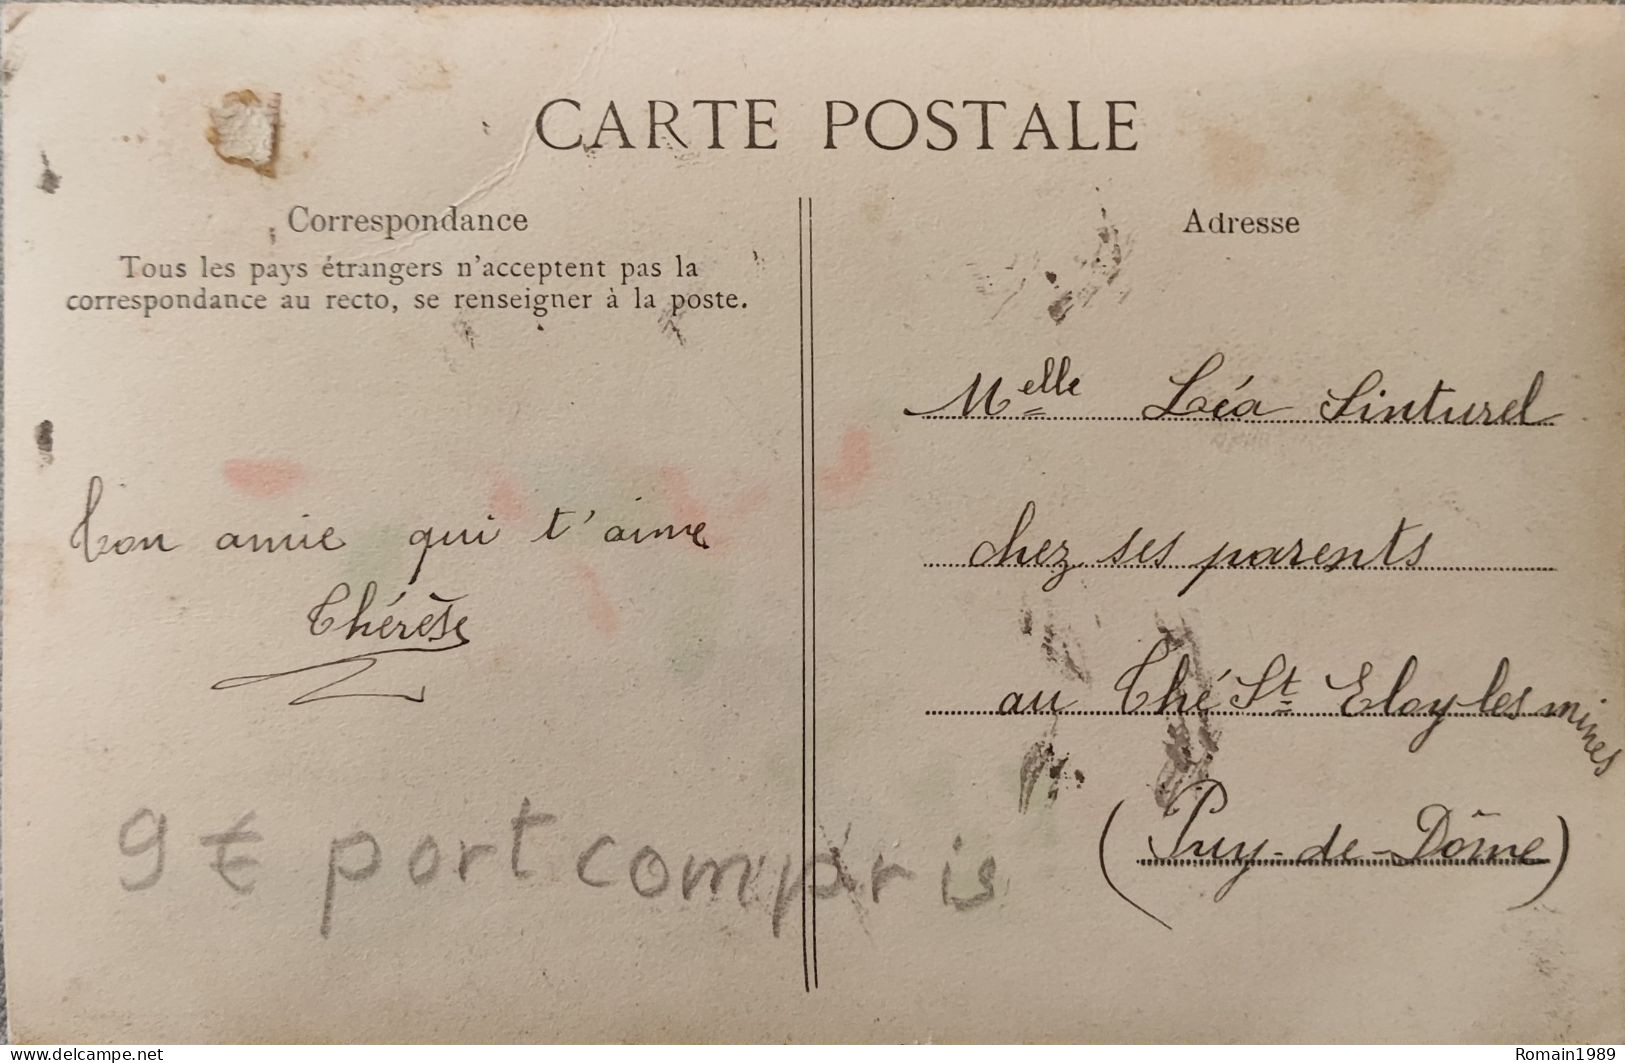 CARTE POSTALE
Correspondance
Tous les pays étrangers n'acceptent pas la
correspondance au recto, se renseigner à la poste.
Ton amie qui t'aime
Thérèse
9 € port compris
Adresse
Melle Léa Sinturel
chez ses parents
au Thé St Eloy les mines
(Puy-de-Dôme)
delcampe.net
Romain1989